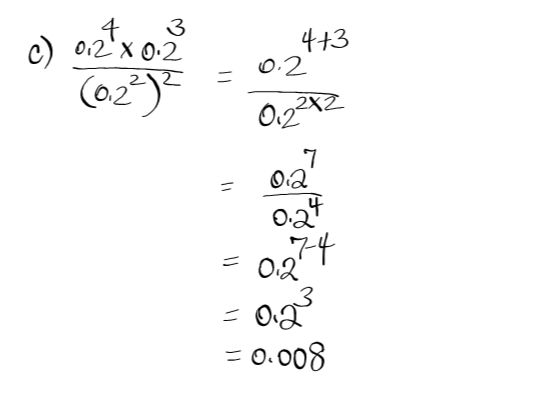 c) (0.2^4 x 0.2^3)/((0.2^2)^2) = (0.2^(4+3))/(0.2^(2x2))
= (0.2^7)/(0.2^4)
= 0.2^(7-4)
= 0.2^3
= 0.008